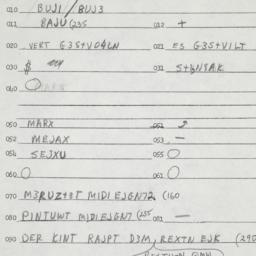 010 BUJ1/BUJ3
011 BAJU(235 012 +
020 VERT G35+V04LN 021 ES G35+V1LT
030 $ 031
040
050 MARX 051
052 MEJAX 053 —
054 SEJXU 055 O
060 O 061 O
070 MIDI EJGN72 (160
080 PINTUWT MIDIEJGN7 (235 081 —
090 DER KINT RAJPT D3M, REXTN EJK (290